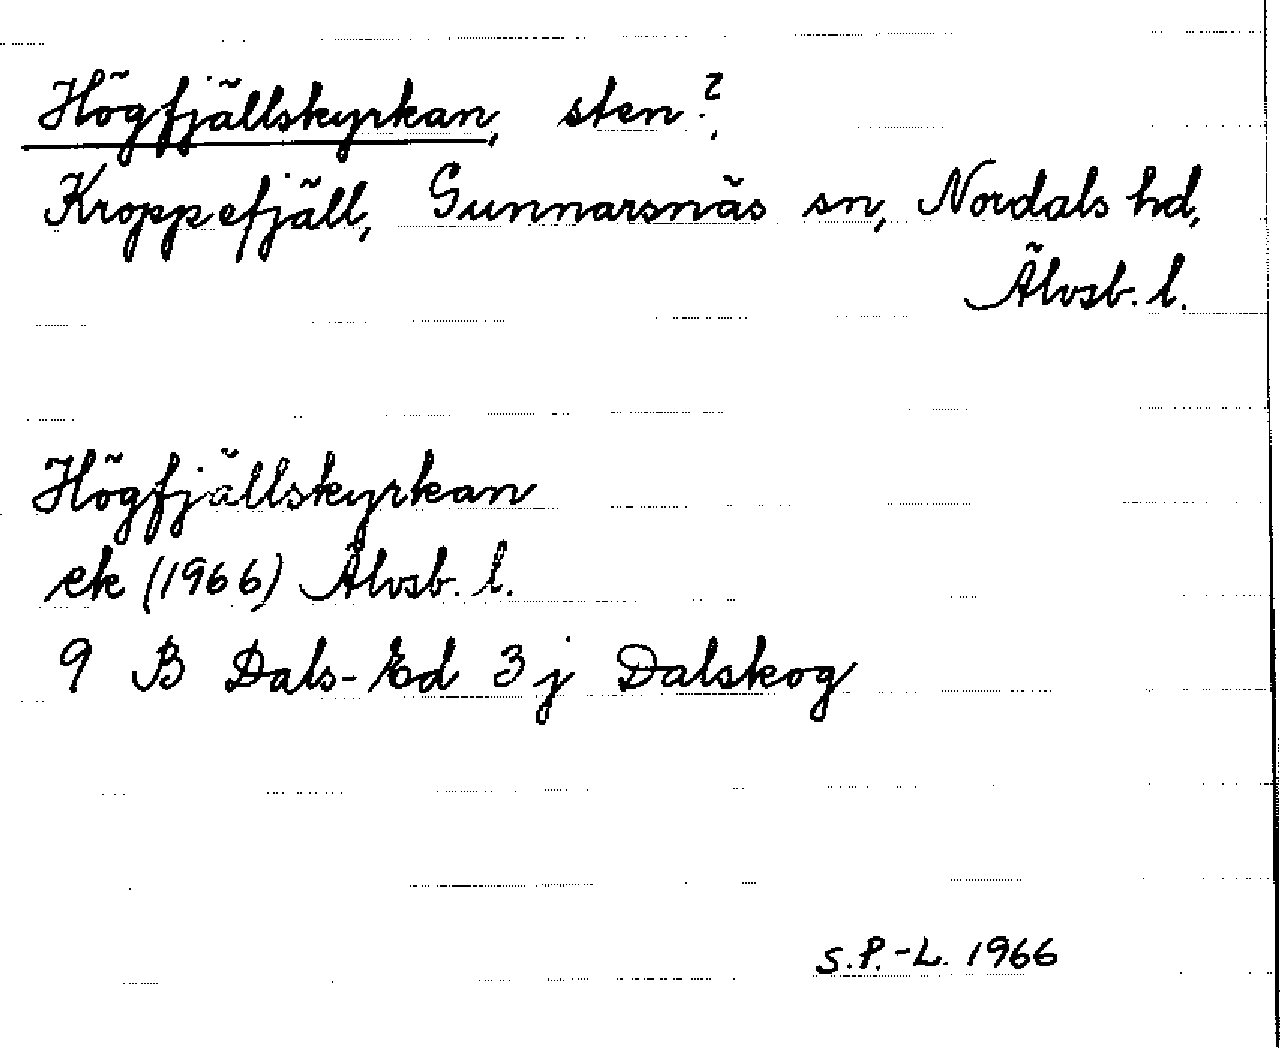 Högfjällskyrkan, sten?,
Kroppefjäll, Gunnarsnäs sn, Nordals hd,
Älvsb. l.
Högfjällskyrkan
ek (1966) Älvsb. l.
9 B Dals-Ed 3 j Dalskog
S.P.-L. 1966